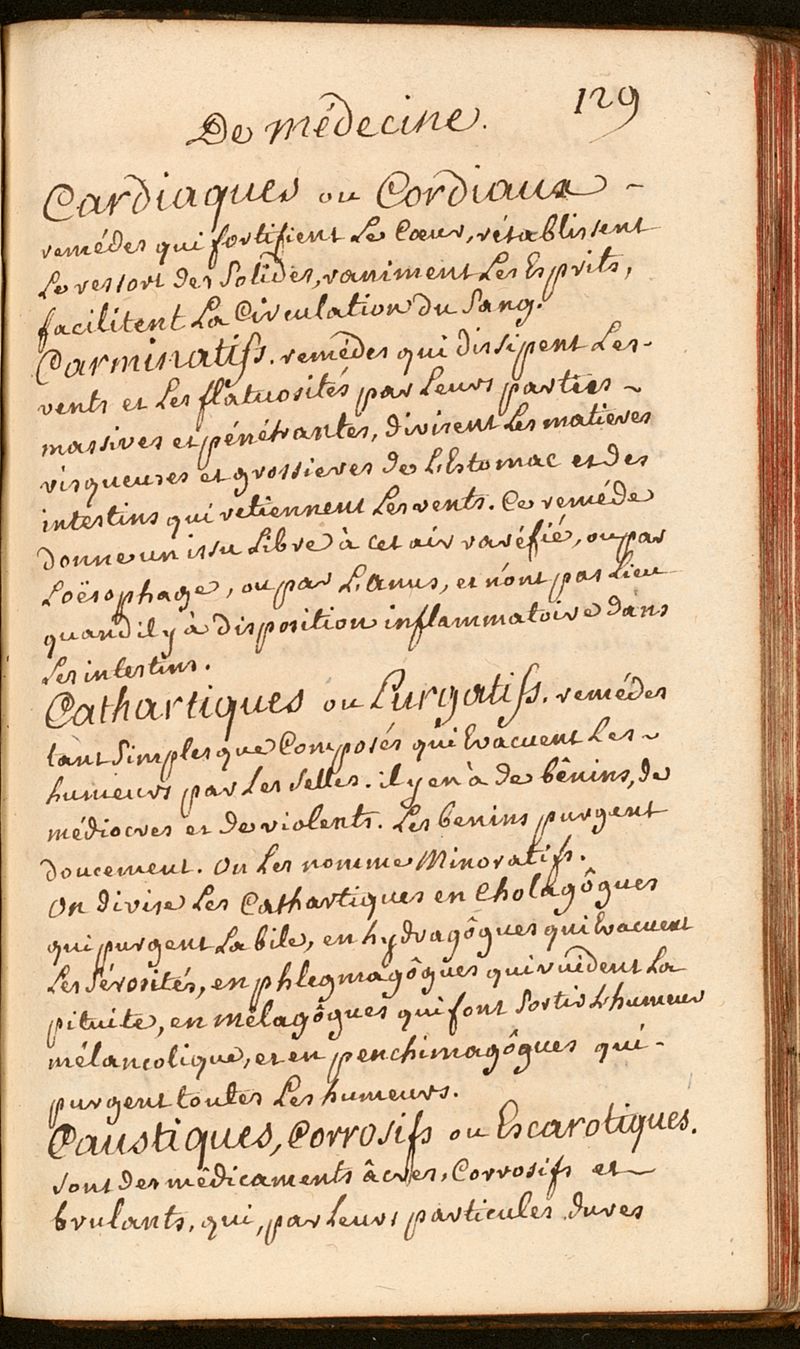 De médecine.
129
Cardiaques ou Cordiaux -
remédes qui fortifient Le Cœur, rétablissent
Le ressort des Solides, raniment Les Esprits,
facilitent La Circulation du Sang.
Carminatifs. remédes qui dissipent Les-
vents et Les flatuosités par Leurs parties ~
massives et pénétrantes, divisent Les matieres
visqueuses et grossieres de L'Estomac et des
intestins qui retiennent Les vents. Ce reméde
donne un issu Libre à cet air raréfié, ou par
Loësophage, ou par L'anus, et n'ont pas Lieu
quand il y à disposition inflammatoire dans
Les intestins.
Cathartiques ou Purgatifs. remédes
tant Simples que Composés qui Evacuent Les ~
humeurs par Les Selles. il y en à de bênins, de
médiocres et de violents. Les benins purgent
doucement. On Les nomme Minoratifs.
On divise Les Cathartiques en Cholagôgues
qui purgent La bile, en hydragôgues qui Evacuent
Les Sérosités, en phlegmagôgues qui vuident La
pituite, en mélagôgues qui font Sortir L'humeur
mélancolique, et en penchimagôgues qui -
purgent toutes Les humeurs.
Caustiques, Corrosifs ou Escarotiques.
sont des mêdicaments âcres, Corrosifs et ~
brulants, qui, par Leurs particules dures